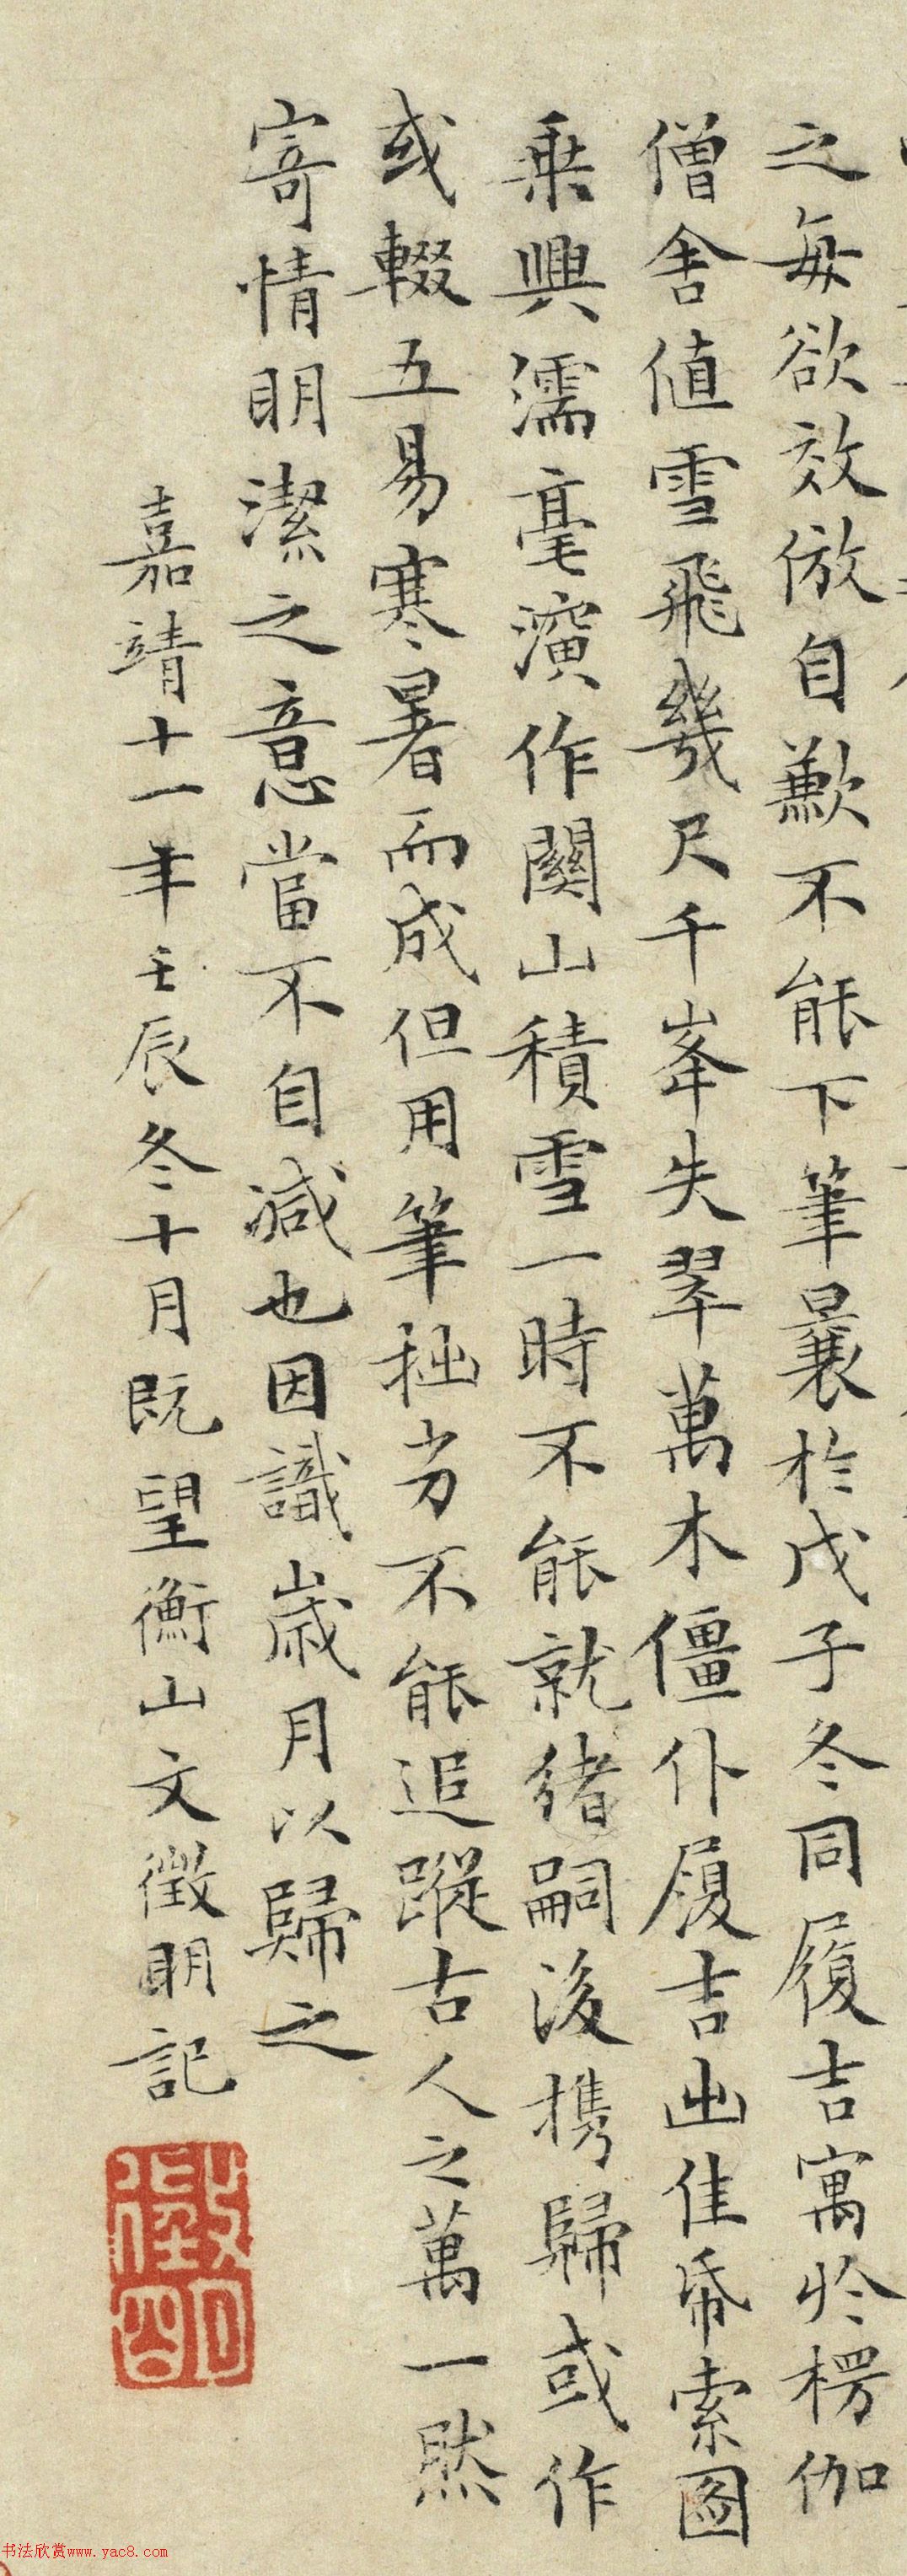 之每欲效倣自歉不能下筆曩於戊子冬同履吉寓於楞伽
僧舍値雪飛幾尺千峯失翠萬木僵仆履吉出佳帋索圖
乗興濡毫演作關山積雪一時不能就緒嗣後携歸或作
或輟五易寒暑而成但用筆拙劣不能追蹤古人之萬一然
寄情明潔之意當不自減也因識歲月以歸之
嘉靖十一年壬辰冬十月既望衡山文徵明記
徵明
书法欣赏www.yac8.com